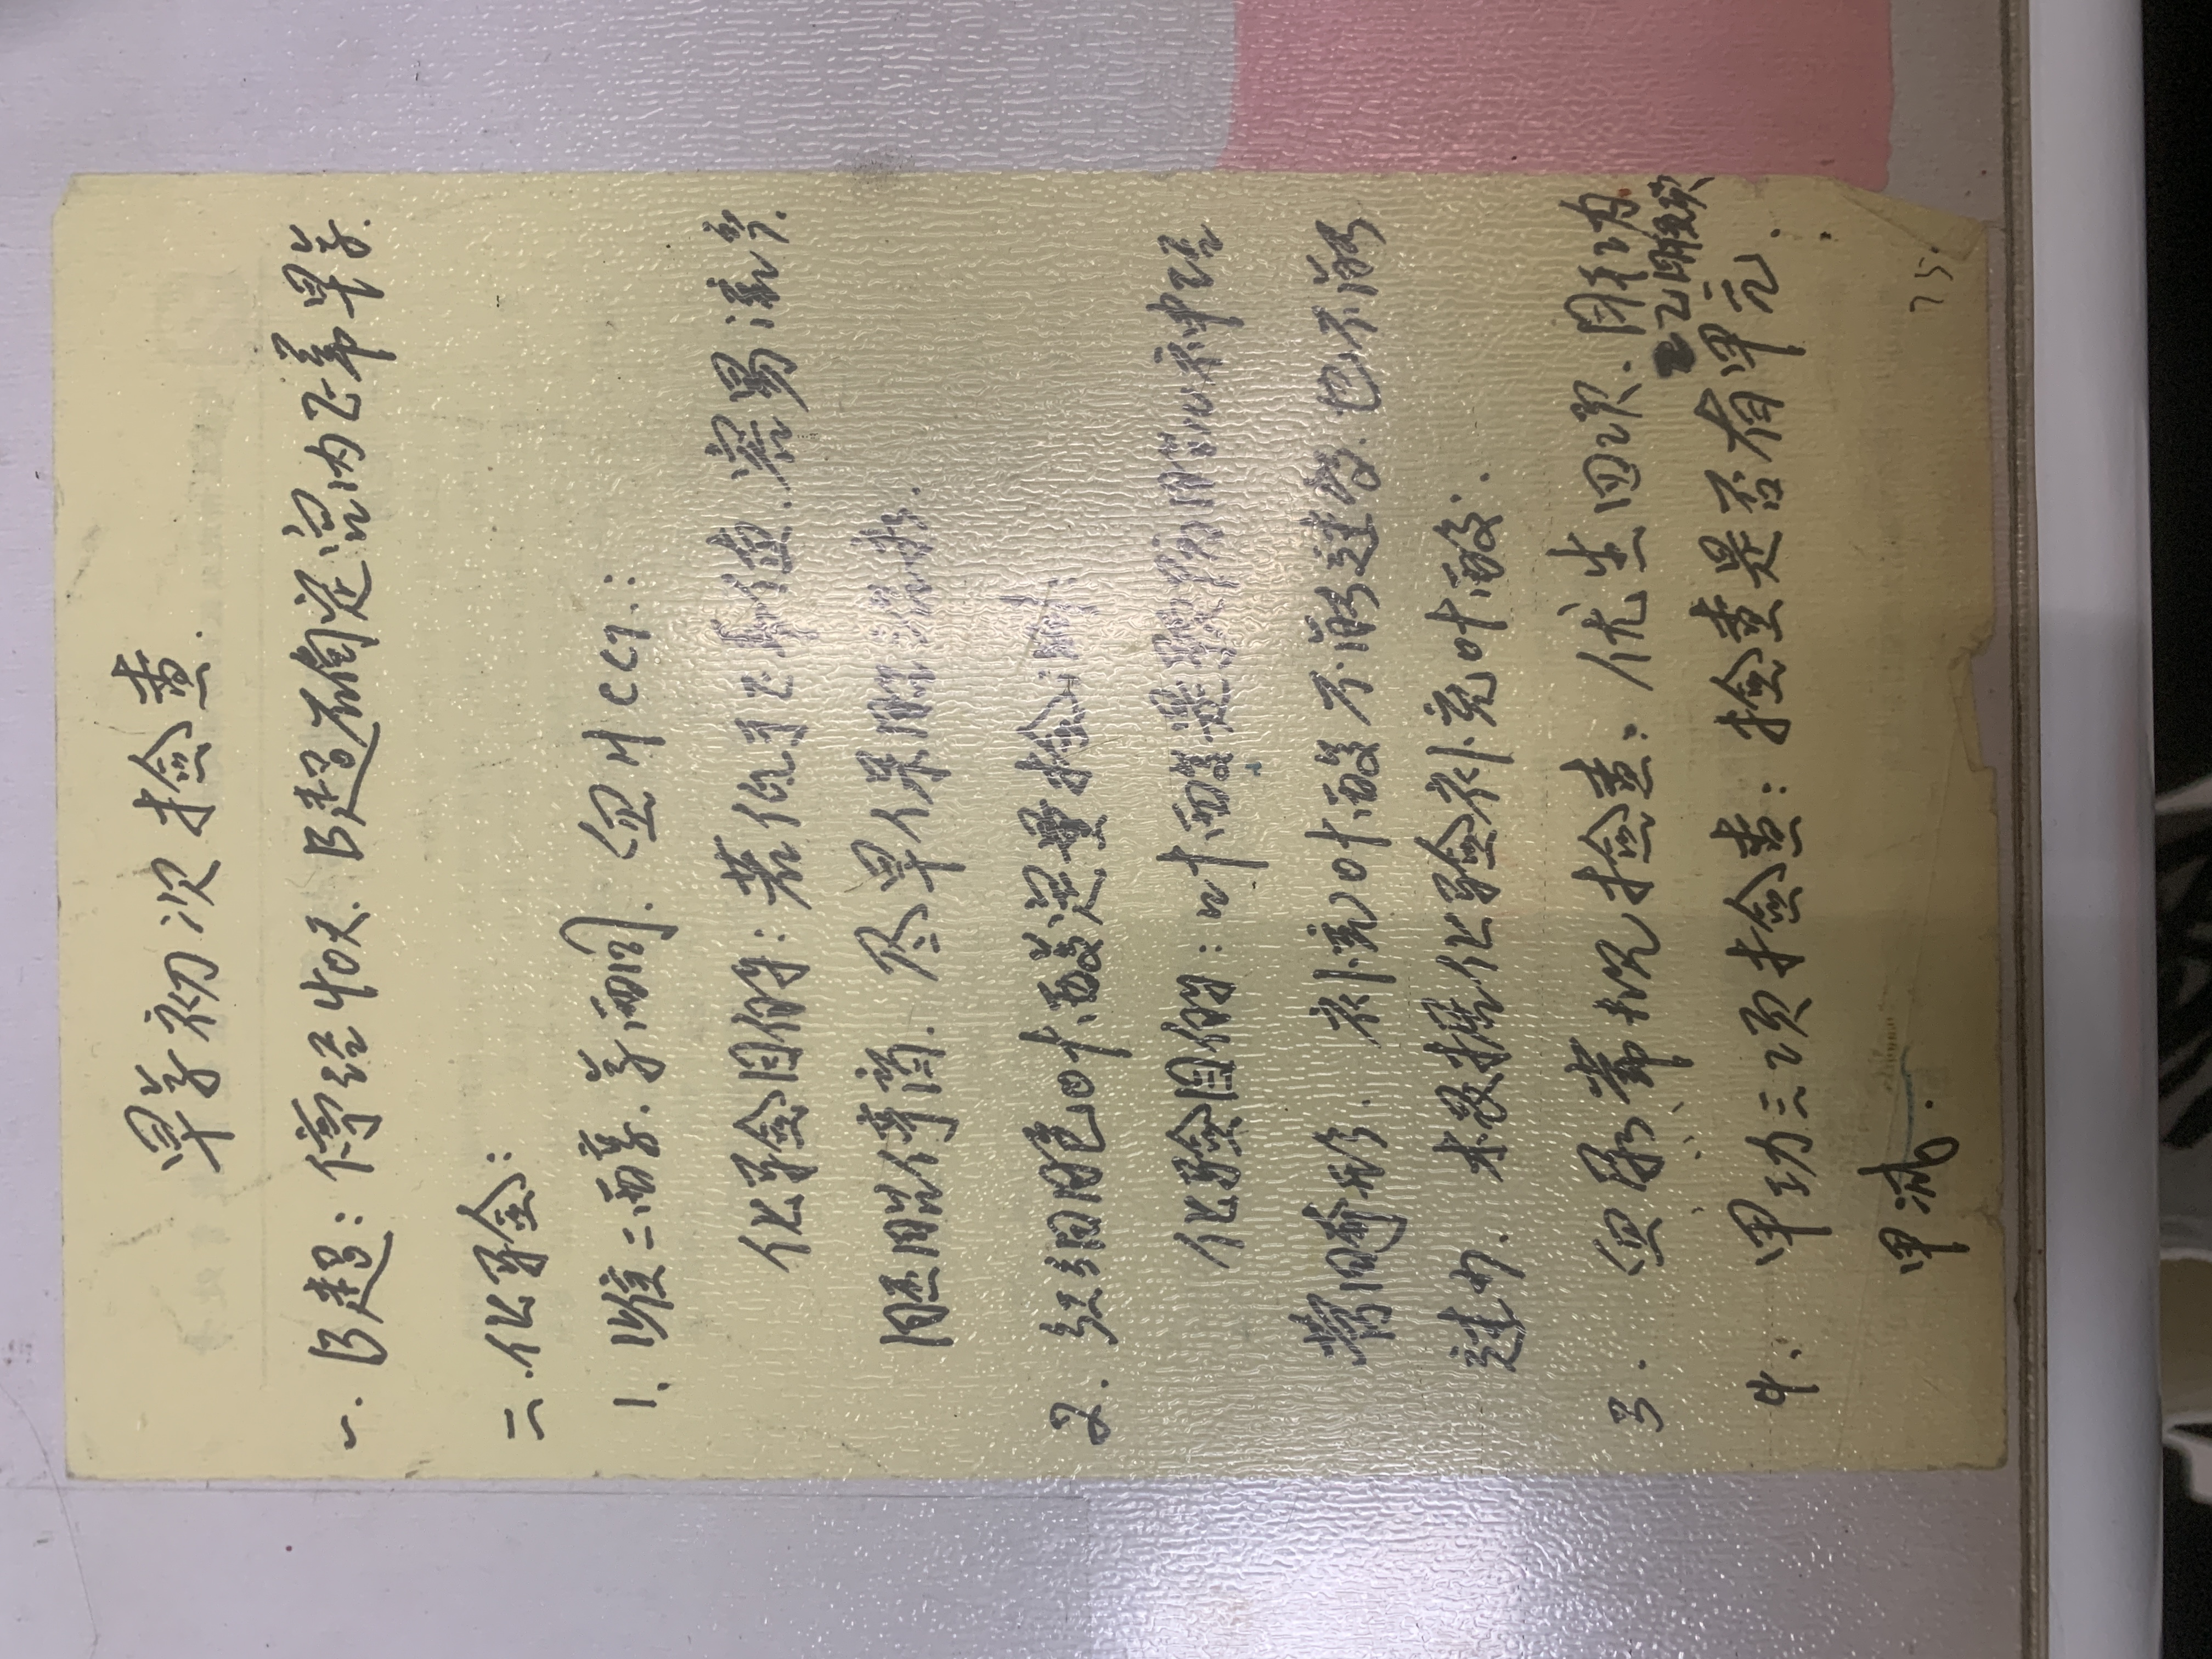 早孕初次检查.
一. B超: 停经40天. B超确定宫内正常早孕.
二. 化验:
1、雌二醇. 孕酮. 血HCG.:
化验目的: 若低于正常值. 容易流产.
胚胎停育. 尽早保胎治疗.
2. 红细胞叶酸定量检测
化验目的: 叶酸是预防胎儿神经
管畸形. 补充叶酸不能过多. 也不能
过少. 根据化验补充叶酸.
3. 血尿常规检查: 优生四项. 肝功.
乙肝五项
4. 甲功三项检查: 检查是否有甲亢.
甲减.
75.